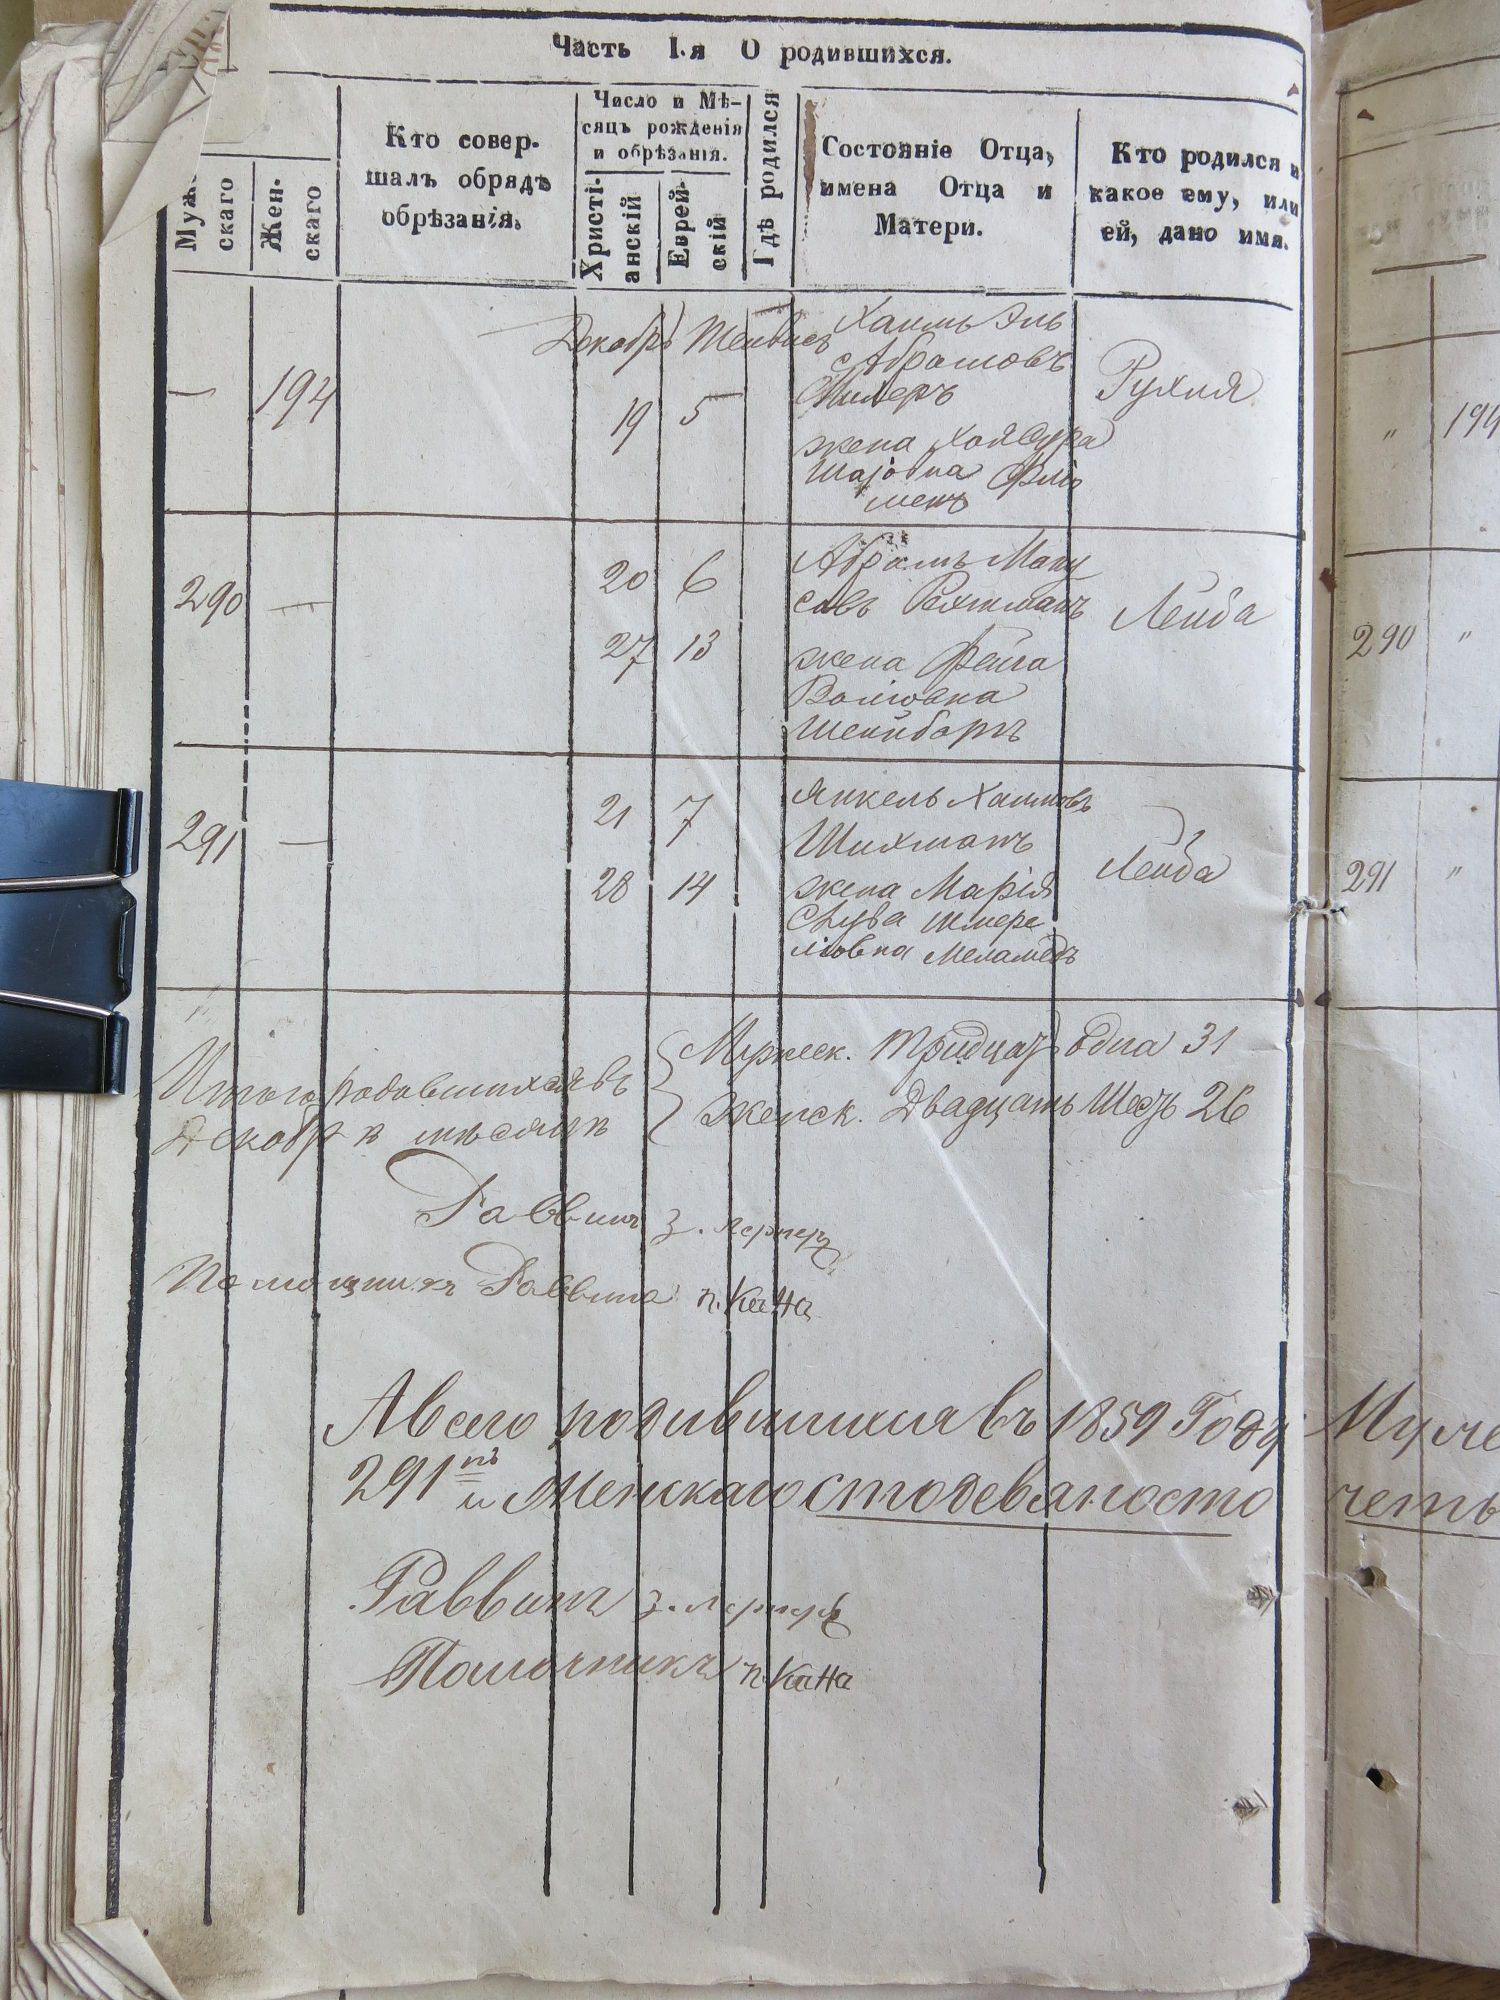 Часть I.я О родившихся.
Муж-
скаго
Жен-
скаго
Кто совер-
шалъ обрядъ
обрѣзанія.
Число и Мѣ-
сяцъ рожденія
и обрѣзанія.
Христі-
анскій
Еврей-
скій
Гдѣ родился
Состояніе Отца,
имена Отца и
Матери.
Кто родился и
какое ему, или
ей, дано имя.
— 194
Декабрь
19 5
Хаимъ Эль
Абрамовъ
жена Хая Сура
Рухля
290 —
20 6
27 13
Абрамъ
жена Фейга
Волковна
Лейба
291 —
21 7
28 14
Янкель Хаимовъ
Шихманъ
жена Марія
Шмере
ліовна Меламедъ
Лейба
Итого родившихся въ
Декабрѣ мѣсяцѣ
Мужеск. тридцать одна 31
Женск. Двадцать Шесть 26
Раввинъ З. Лернеръ
Помощникъ Раввина П. Кана
А всего родившихся въ 1859 Году
291 и Женскаго сто девяносто
Раввинъ З. Лернеръ
Помошникъ П. Кана
„ 194
290 „
291 „
Муже
четы